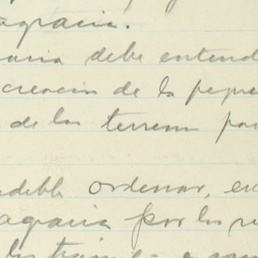 agraria.
raria debe entend
creacion de la peque
de los terrenos par
deble ordenar, en
agraria por los re